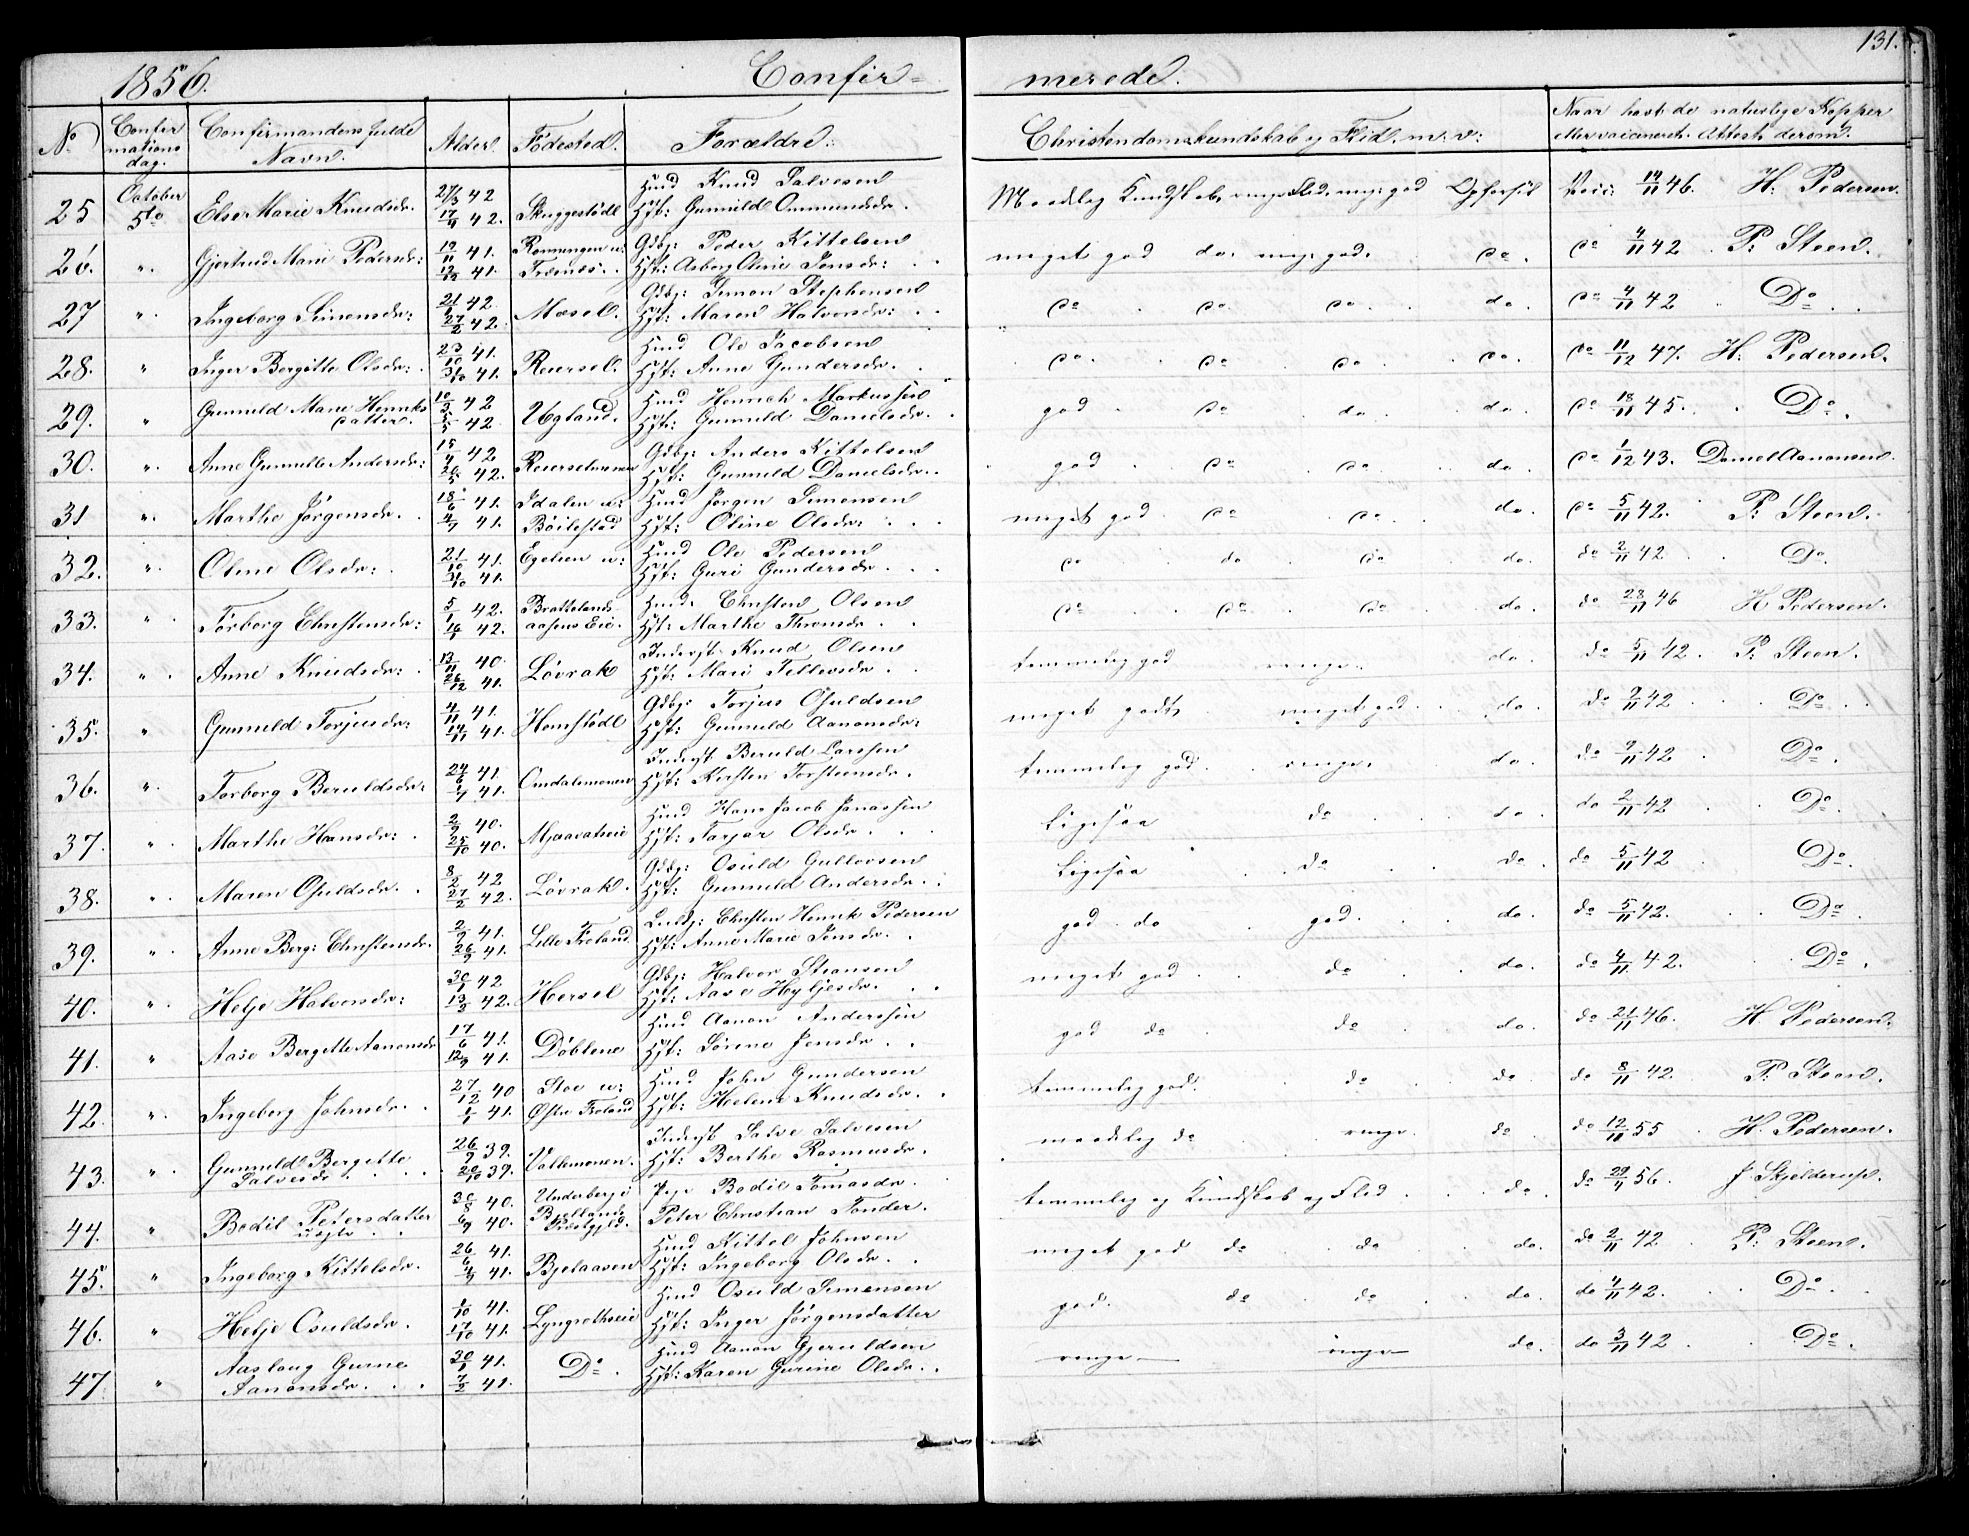 131.
1856. Confir= merede.
No Confirmations dag. Confirmandens fulde Navn. Alder. Födested. Forældre. Christendomskundskab og Flid. m: v: Naar havt de naturlige Kopper eller vaccineret. Attest derom.
25 October 5te Else Marie Knudsdr. 27/3 42 17/4 42. Skuggestödl Hmd Knud Salvesen Hst: Gunnild Ommundsdr. Maadelig Kundskab, ringe Flid, meg: god Opførsel Vacc: 14/11 46. H. Pedersen.
26. " Gjertrud Marie Pedersdr: 19/11 41. 12/12 41. Rønningen u: Trænes. Gdbr: Peder Kittelsen Hst: Asberg Oline Jensdr: meget god do. meg: god. do. do 4/11 42 P. Steen.
27 " Ingeborg Simonsdr: 21/1 42. 27/2 42. Mæsel. Gdbr: Simon Stephensen Hst: Maren Halvorsdr: do do do do do 4/11 42 Do
28. " Inger Bergitte Olsdr: 23/10 41. 31/10 41. Reiersel. Hmd Ole Jacobsen Hst: Anne Gundersdr. do. do do do. do 11/12 47. H. Pedersen.
29. " Gunnild Marie Henriks datter. 10/3 42 5/5 42. Ugland. Hmd Henrich Markussen Hst: Gunnild Danielsdr. god do do do. do 18/11 45. Do.
30. " Anne Gunnille Andersdr: 15/4 42 20/5 42. Reierselmonen Gdbr: Anders Kittelsen Hst: Gunnild Danielsdr. god do do do. do 1/12 43. Daniel Aanonsen.
31 " Marthe Jörgensdr. 18/6 41. 4/7 41. Idalen u: Böilestad Hmd Jörgen Simonsen Hst: Oline Olsdr: meget god do do. do. do 5/11 42. P. Steen.
32. " Oline Olsdr: 21/10 41. 31/10 41. Egelien u: Hmd Ole Pedersen Hst: Guri Gundersdr. do do do do do 2/11 42. Do.
33. " Torborg Christensdr: 5/1 42. 16/1 42. Brattelands aasens Eie. Hmd. Christen Olsen Hst: Marthe Thronsdr. do. do. do do. do 28/11 46 H Pedersen.
34. " Anne Knudsdr: 13/11 40. 26/12 41. Lövrak Inderst Knud Olsen Hst: Mari Tellevsdr temmelig god ringe. do. do 5/11 42. P. Steen.
35. " Gunnild Torjusdr: 4/11 41. 14/11 41. Homstödl Gdbr: Torjus Osuldsen Hst: Gunnild Aanonsdr: meget godt, meget god do. do 2/11 42 Do.
36. " Torborg Beruldsdr: 24/6 41. 4/7 41. Omdalsmonen Inderst Beruld Larssen Hst: Kirsten Torsteinsdr. temmelig god. ringe. do. do 2/11 42 Do.
37. " Marthe Hansdr: 2/9 40. 25/10 40. Mjaavatneie Hmd Hans Jacob Jonassen Hst: Tarjer Olsdr. Ligesaa do do. do 2/11 42 Do.
38. " Maren Osuldsdr. 8/2 42 27/2 42. Lövrak. Gdbr: Osuld Gullovsen Hst: Gunnild Andersdr. Ligesaa do do do 5/11 42 Do.
39. " Anne Berg: Christensdr. 2/9 41. 26/9 41. Lille Fröland. Christen Henrik Pedersen Hst: Anne Marie Jensdr. god do god. do. do 5/11 42. Do.
40. " Helje Halvorsdr: 30/1 42 13/3 42. Hersel Gdbr: Halvor Steansen Hst: Aase Heljesdr. meget god. do do. do 4/11 42. Do.
41. " Aase Bergitte Aanonsdr 17/6 41. 12/9 41. Döblene Hmd Aanon Anderssen Hst: Sörine Jensdr. god do do do. do 21/11 46. H Pedersen.
42. " Ingeborg Johnsdr. 27/12 40 1/1 41. Stoe u: Østre Fröland Hmd John Gundersen Hst: Helene Knudsdr. temmelig god. do do do 8/11 42. P. Steen.
43. " Gunnild Bergitte Salvesdr. 26/9 39. 20/10 39. Vallemonen. Inderst Salve Salvesen Hst: Berthe Rasmusdr. maadelig do ringe. do. do 12/11 55 H. Pedersen.
44. " Bodil Petersdatter uægte. 30/8 40. 6/9 40. Underberge Bjellands Præstgjld. Pige Bodil Tomasdr. Peter Christian Tonder. temmelig og Kundskab og Flid do. do 29/4 56. J Skjelderup.
45. " Ingeborg Kittelsdr. 26/6 41. 4/7 41. Bjelaasen Hmd Kittel Johnsen Hst: Ingeborg Olsdr. meget god do do do. do 2/11 42 P. Steen.
46. " Helje Osuldsdr. 1/10 41. 17/10 41. Lyngrothseie Hmd Osuld Simonsen Hst: Inger Jörgensdatter god. do do do. do 4/11 42. Do.
47. " Aaslaug Gurine Aanonsdr. 30/1 41. 7/2 41. Do. Hmd Aanon Gjeruldsen Hst: Karen Gurine Olsdr. ringe ringe do. do 3/11 42 Do.